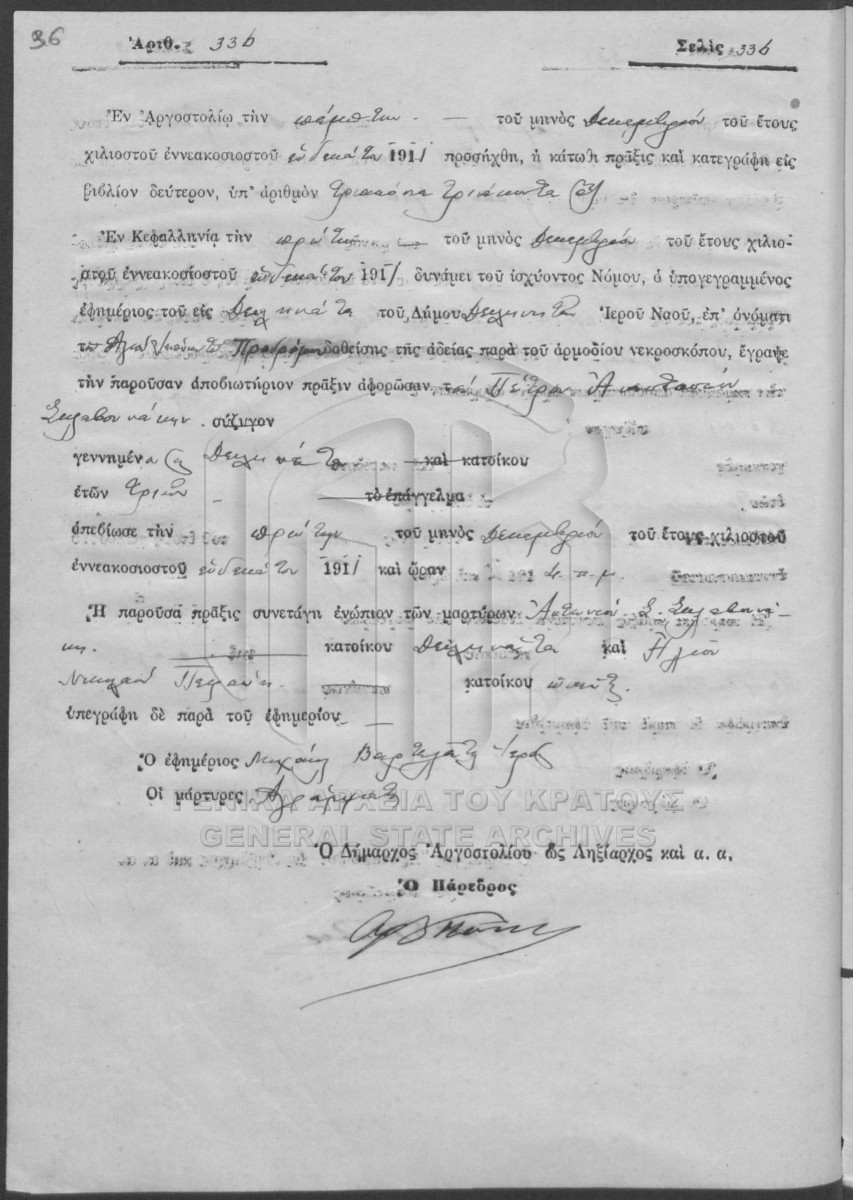 36
Ἀριθ. 336 Σελὶς 336
Ἐν Ἀργοστολίῳ τὴν πέμπτην τοῦ μηνὸς Δεκεμβρίου τοῦ ἔτους
χιλιοστοῦ ἐννεακοσιοστοῦ ἑνδεκάτου 1911 προσήχθη, ἡ κάτωθι πρᾶξις καὶ κατεγράφη εἰς
βιβλίον δεύτερον, ὑπ' ἀριθμὸν τριακόσια τριάκοντα ἕξ
Ἐν Κεφαλληνίᾳ τὴν πρώτην τοῦ μηνὸς Δεκεμβρίου τοῦ ἔτους χιλιο-
στοῦ ἐννεακοσιοστοῦ ἑνδεκάτου 1911 δυνάμει τοῦ ἰσχύοντος Νόμου, ὁ ὑπογεγραμμένος
ἐφημέριος τοῦ εἰς Δειλινάτα τοῦ Δήμου Δειλινάτων Ἱεροῦ Ναοῦ, ἐπ' ὀνόματι
τοῦ Ἁγίου Προδρόμου δοθείσης τῆς ἀδείας παρὰ τοῦ ἁρμοδίου νεκροσκόπου, ἔγραψε
τὴν παροῦσαν ἀποβιωτήριον πρᾶξιν ἀφορῶσαν τὸν Πέτρον Ἀναστασίου
Σκλαβουνάκην σύζυγον
γεννημένον Δειλινάτα καὶ κατοίκου
ἐτῶν τριῶν τὸ ἐπάγγελμα
ἀπεβίωσε τὴν πρώτην τοῦ μηνὸς Δεκεμβρίου τοῦ ἔτους χιλιοστοῦ
ἐννεακοσιοστοῦ ἑνδεκάτου 1911 καὶ ὥραν 4 π.μ.
Ἡ παροῦσα πρᾶξις συνετάγη ἐνώπιον τῶν μαρτύρων Ἀντωνίου Σ. Σκλαβουνά-
κη. κατοίκου Δειλινάτα καὶ Ἠλιού
Νικολάου κατοίκου
ὑπεγράφη δὲ παρὰ τοῦ ἐφημερίου
Ὁ ἐφημέριος Μιχαήλ ἱερεύς
Οἱ μάρτυρες Ἀγράμματοι
ΓΕΝΙΚΑ ΑΡΧΕΙΑ ΤΟΥ ΚΡΑΤΟΥΣ
GENERAL STATE ARCHIVES
Ὁ Δήμαρχος Ἀργοστολίου ὡς Ληξίαρχος καὶ α. α.
Ὁ Πάρεδρος